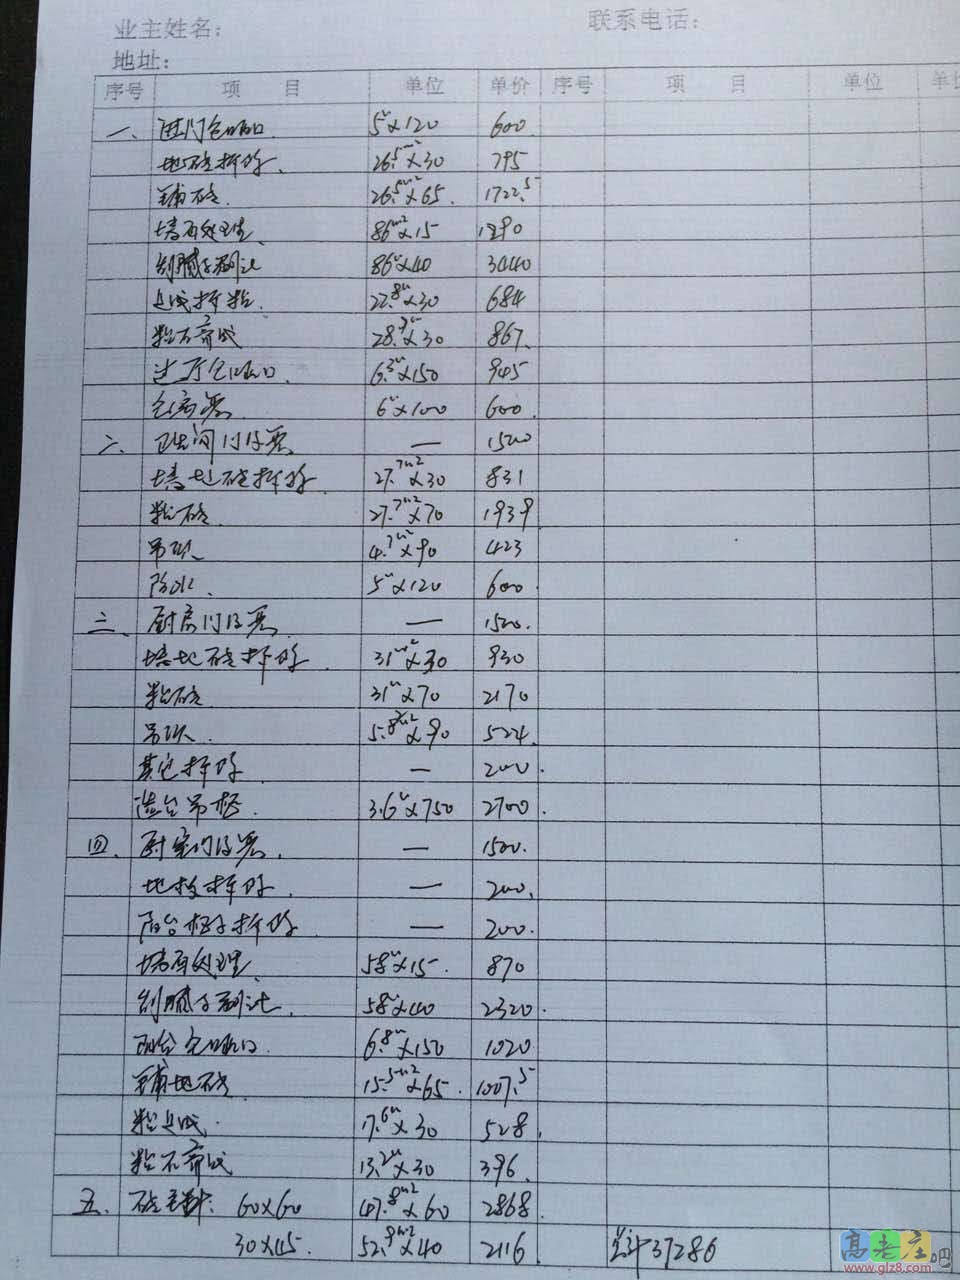 业主姓名： 联系电话：
地址：
序号 项 目 单位 单价 序号 项 目 单位 单价
一、 进门包哑口 5㎡×120 600
地砖拆除、 26.5m²×30 795
铺砖、 26.5m²×65. 1722.5
墙面处理、 86m²×15 1290
刮腻子刷漆 86×40 3440
22.8m×30 684
粘石膏线 28.9m×30 867.
包哑口、 6.3×150 945
6×100 600.
二、 卫生间门及套 — 1500
墙地砖拆除. 27.7m²×30 831
粘砖、 27.7m²×70 1939
吊顶、 4.7m²×90 423
防水、 5×120 600.
三、 厨房门及套、 — 1500.
墙地砖拆除、 31m²×30 930
粘砖、 31×70 2170
吊顶、 5.8m²×90 524.
其它拆除、 — 200.
灶台吊柜、 3.6×750 2700.
四、 门及套、 — 1500.
地板拆除、 — 200.
阳台柜子拆除、 — 200.
墙面处理、 58×15. 870
刮腻子刷漆、 58×40 2320.
阳台包哑口、 6.8×150 1020
铺地砖、 15.5m²×65. 1007.5
17.6m×30 528.
粘石膏线 13.2m×30 396.
五、 砖 60×60 47.8m²×60 2868
30×45. 52.9m²×40 2116 37286
高老庄吧
www.glz8.com